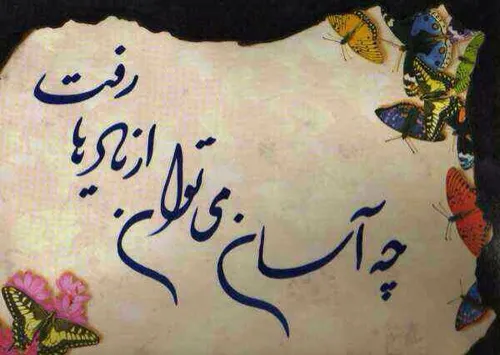 چه آسان می توان از یادها رفت